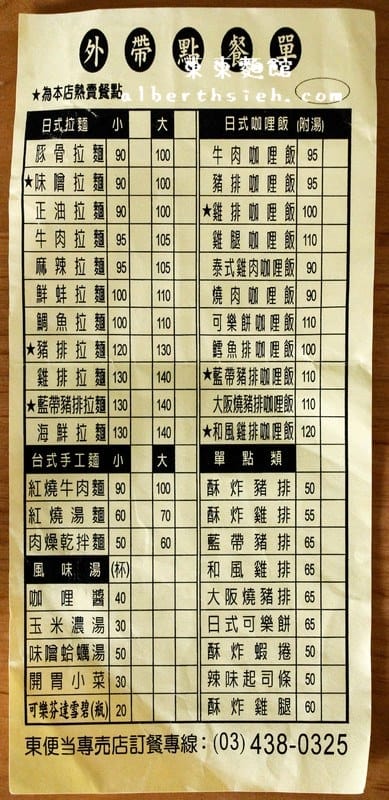 外帶點餐單
東東麵館
★為本店熱賣餐點
alberthsieh.com
日式拉麵 小 大
豚骨拉麵 90 100
★味噌拉麵 90 100
正油拉麵 90 100
牛肉拉麵 95 105
麻辣拉麵 95 105
鮮蚌拉麵 100 110
鯛魚拉麵 100 110
★豬排拉麵 120 130
雞排拉麵 130 140
★藍帶豬排拉麵 130 140
海鮮拉麵 130 140
台式手工麵 小 大
紅燒牛肉麵 90 100
紅燒湯麵 60 70
肉燥乾拌麵 50 60
風味湯 (杯)
咖哩醬 40
玉米濃湯 30
味噌蛤蠣湯 50
開胃小菜 30
可樂芬達雪碧(瓶) 20
日式咖哩飯 (附湯)
牛肉咖哩飯 95
豬排咖哩飯 95
★雞排咖哩飯 100
雞腿咖哩飯 110
泰式雞肉咖哩飯 90
燒肉咖哩飯 90
可樂餅咖哩飯 110
鱈魚排咖哩飯 100
★藍帶豬排咖哩飯 110
大阪燒豬排咖哩飯 110
★和風雞排咖哩飯 120
單點類
酥炸豬排 50
酥炸雞排 55
藍帶豬排 65
和風雞排 65
大阪燒豬排 65
日式可樂餅 65
酥炸蝦捲 50
辣味起司條 50
酥炸雞腿 60
東便當專売店訂餐專線：(03) 438-0325